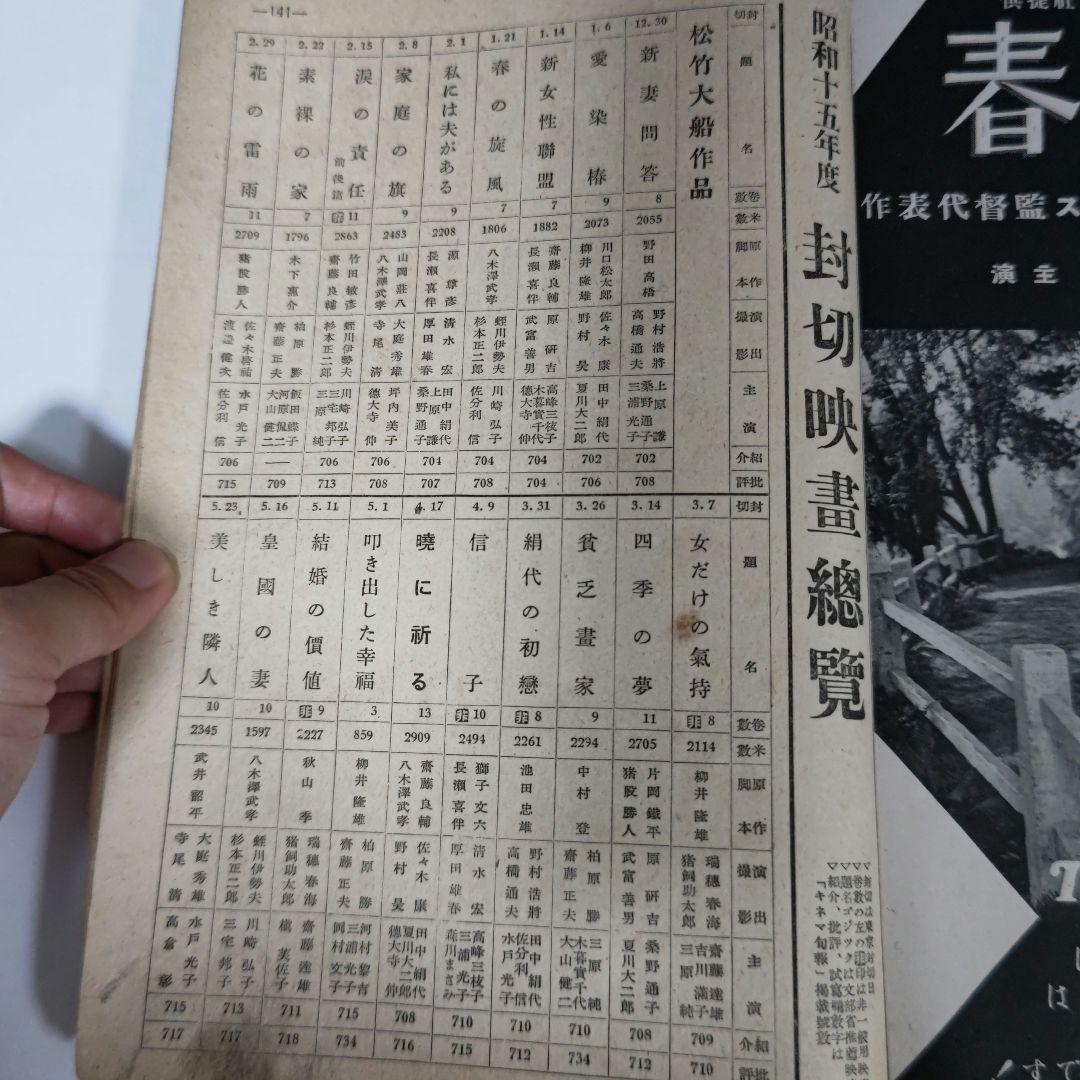 —141—
昭和十五年度 封切映畫總覽
▽封切は東京封切日
▽卷數の左の非印は非一般用映
▽題名ゴシックは文部省推薦映
▽紹介、批評、試寫欄數字は
「キネマ旬報」揭載號數
松竹大船作品
封切 題名 卷數 米數 原作 脚本 演出 撮影 主演 紹介 批評
12.30 新妻問答 8 2055 野田高梧 野村浩將 高橋通夫 上原謙 桑野通子 三浦光子 702 708
1.6 愛染椿 9 2073 川口松太郎 柳井隆雄 佐々木康 野村昊 田中絹代 夏川大二郎 702 706
1.14 新女性聯盟 7 1882 齋藤良輔 長瀨喜伴 原硏吉 武富善男 高峰三枝子 木暮實千代 德大寺伸 704 704
1.21 春の旋風 7 1806 八木澤武孝 蛭川伊勢夫 杉本正二郎 川崎弘子 佐分利信 704 708
2.1 私には夫がある 9 2208 源尊彦 長瀨喜伴 清水宏 厚田雄春 田中絹代 上原謙 桑野通子 704 707
2.8 家庭の旗 9 2483 山岡莊八 八木澤武孝 大庭秀雄 寺尾清 坪内美子 德大寺伸 706 708
2.15 淚の責任 前後篇 非 11 2863 竹田敏彦 齋藤良輔 蛭川伊勢夫 杉本正二郎 川崎弘子 三宅邦子 三原純 706 713
2.22 素裸の家 7 1796 木下惠介 柏原勝 齋藤正夫 飯田蝶子 河原侃二 大山健二 — 709
2.29 花の雷雨 11 2709 猪股勝人 佐々木啓祐 渡邊健次 水戸光子 佐分利信 706 715
封切 題名 卷數 米數 原作 脚本 演出 撮影 主演 紹介 批評
3.7 女だけの氣持 非 8 2114 柳井隆雄 瑞穗春海 猪飼助太郎 齋藤達雄 吉川滿子 三原純 709 710
3.14 四季の夢 11 2705 片岡鐵平 猪股勝人 原硏吉 武富善男 桑野通子 夏川大二郎 708 712
3.26 貧乏畫家 9 2294 中村登 柏原勝 齋藤正夫 三原純 木暮實千代 大山健二 710 734
3.31 絹代の初戀 非 8 2261 池田忠雄 野村浩將 高橋通夫 田中絹代 佐分利信 水戸光子 710 712
4.9 信子 非 10 2494 獅子文六 長瀨喜伴 清水宏 厚田雄春 高峰三枝子 三浦光子 森川まさみ 710 715
4.17 曉に祈る 13 2909 齋藤良輔 八木澤武孝 佐々木康 野村昊 田中絹代 夏川大二郎 德大寺伸 708 716
5.1 叩き出した幸福 3 859 柳井隆雄 柏原勝 齋藤正夫 河村黎吉 三浦光子 岡村文子 715 734
5.11 結婚の價値 非 9 2227 秋山季 瑞穗春海 猪飼助太郎 齋藤達雄 槇芙佐子 711 718
5.16 皇國の妻 10 1597 八木澤武孝 蛭川伊勢夫 杉本正二郎 川崎弘子 三宅邦子 713 717
5.23 美しき隣人 10 2345 武井韶平 大庭秀雄 寺尾清 水戸光子 高倉彰 715 717
春
ス監督代表作
主演